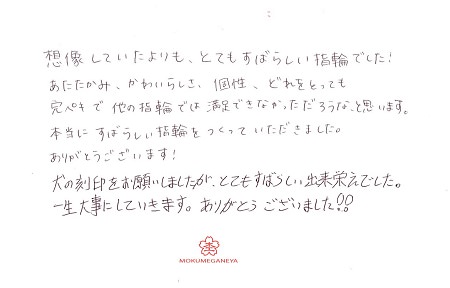 想像していたよりも、とてもすばらしい指輪でした!
あたたかみ、かわいらしさ、個性、どれをとっても
完ペキで他の指輪では満足できなかっただろうなと思います。
本当にすばらしい指輪をつくっていただきました。
ありがとうございます!
犬の刻印をお願いしましたが、とてもすばらしい出来栄えでした。
一生大事にしていきます。ありがとうございました!!
MOKUMEGANEYA